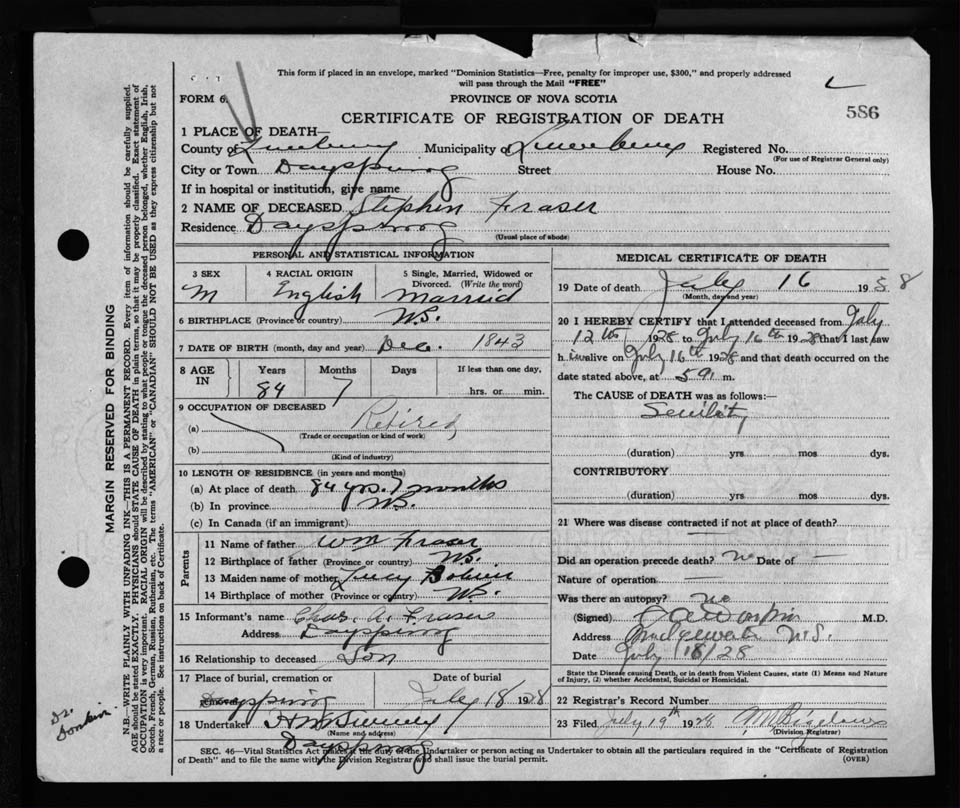 This form if placed in an envelope, marked "Dominion Statistics—Free, penalty for improper use, $300," and properly addressed
will pass through the Mail "FREE"
FORM 6.
PROVINCE OF NOVA SCOTIA
586
CERTIFICATE OF REGISTRATION OF DEATH
1 PLACE OF DEATH—
County of Lunenburg Municipality of Lunenburg Registered No.
(For use of Registrar General only)
City or Town Dayspring Street House No.
If in hospital or institution, give name
2 NAME OF DECEASED Stephen Fraser
Residence Dayspring
(Usual place of abode)
PERSONAL AND STATISTICAL INFORMATION
3 SEX 4 RACIAL ORIGIN 5 Single, Married, Widowed or
Divorced. (Write the word)
M English Married
6 BIRTHPLACE (Province or country) N.S.
7 DATE OF BIRTH (month, day and year) Dec. 1843
8 AGE IN Years Months Days If less than one day,
84 7 hrs. or min.
9 OCCUPATION OF DECEASED
(a) Retired
(Trade or occupation or kind of work)
(b)
(Kind of industry)
10 LENGTH OF RESIDENCE (in years and months)
(a) At place of death 84 yrs. 7 months
(b) In province N.S.
(c) In Canada (if an immigrant)
Parents
11 Name of father Wm Fraser
12 Birthplace of father (Province or country) N.S.
13 Maiden name of mother Lucy
14 Birthplace of mother (Province or country) N.S.
15 Informant's name Chas. A. Fraser
Address Dayspring
16 Relationship to deceased Son
17 Place of burial, cremation or Date of burial
Dayspring July 18 1928
18 Undertaker
(Name and address)
Dayspring
MEDICAL CERTIFICATE OF DEATH
19 Date of death July 16 1928
(Month, day and year)
20 I HEREBY CERTIFY that I attended deceased from July
12th 1928 to July 16th 1928 that I last saw
h im alive on July 16th 1928 and that death occurred on the
date stated above, at 5 a. m.
The CAUSE of DEATH was as follows:—
Senility
(duration) yrs mos dys.
CONTRIBUTORY
(duration) yrs mos dys.
21 Where was disease contracted if not at place of death?
Did an operation precede death? no Date of —
Nature of operation —
Was there an autopsy? No
(Signed) Donkin M.D.
Address Bridgewater N.S.
Date July 18/28
State the Disease causing Death, or in death from Violent Causes, state (1) Means and Nature
of Injury, (2) whether Accidental, Suicidal or Homicidal.
22 Registrar's Record Number
23 Filed July 19th 1928
(Division Registrar)
SEC. 46—Vital Statistics Act makes it the duty of the Undertaker or person acting as Undertaker to obtain all the particulars required in the "Certificate of Registration
of Death" and to file the same with the Division Registrar who shall issue the burial permit. (OVER)
MARGIN RESERVED FOR BINDING
N.B.—WRITE PLAINLY WITH UNFADING INK—THIS IS A PERMANENT RECORD. Every item of information should be carefully supplied.
AGE should be stated EXACTLY. PHYSICIANS should STATE CAUSE OF DEATH in plain terms, so that it may be properly classified. Exact statement of
OCCUPATION is very important. RACIAL ORIGIN will be described by stating to what people or tongue the deceased person belonged, whether English, Irish,
Scotch, French, German, Russian, Ruthenian, etc. The terms "AMERICAN" or "CANADIAN" SHOULD NOT BE USED as they express citizenship but not
a race or people. See instructions on back of Certificate.
Dr. Donkin